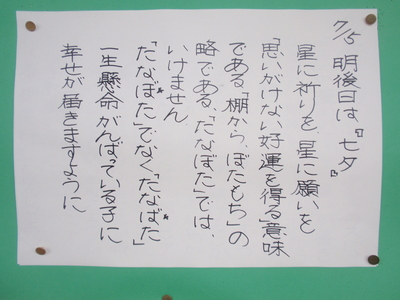 7/5 明後日は、『七夕』
星に祈りを、星に願いを
「思いがけない好運を得る」意味
である「棚から、ぼたもち」の
略である、「たなぼた」では、
いけません
「たなぼた」でなく「たなばた」
一生懸命がんばっている子に
幸せが届きますように